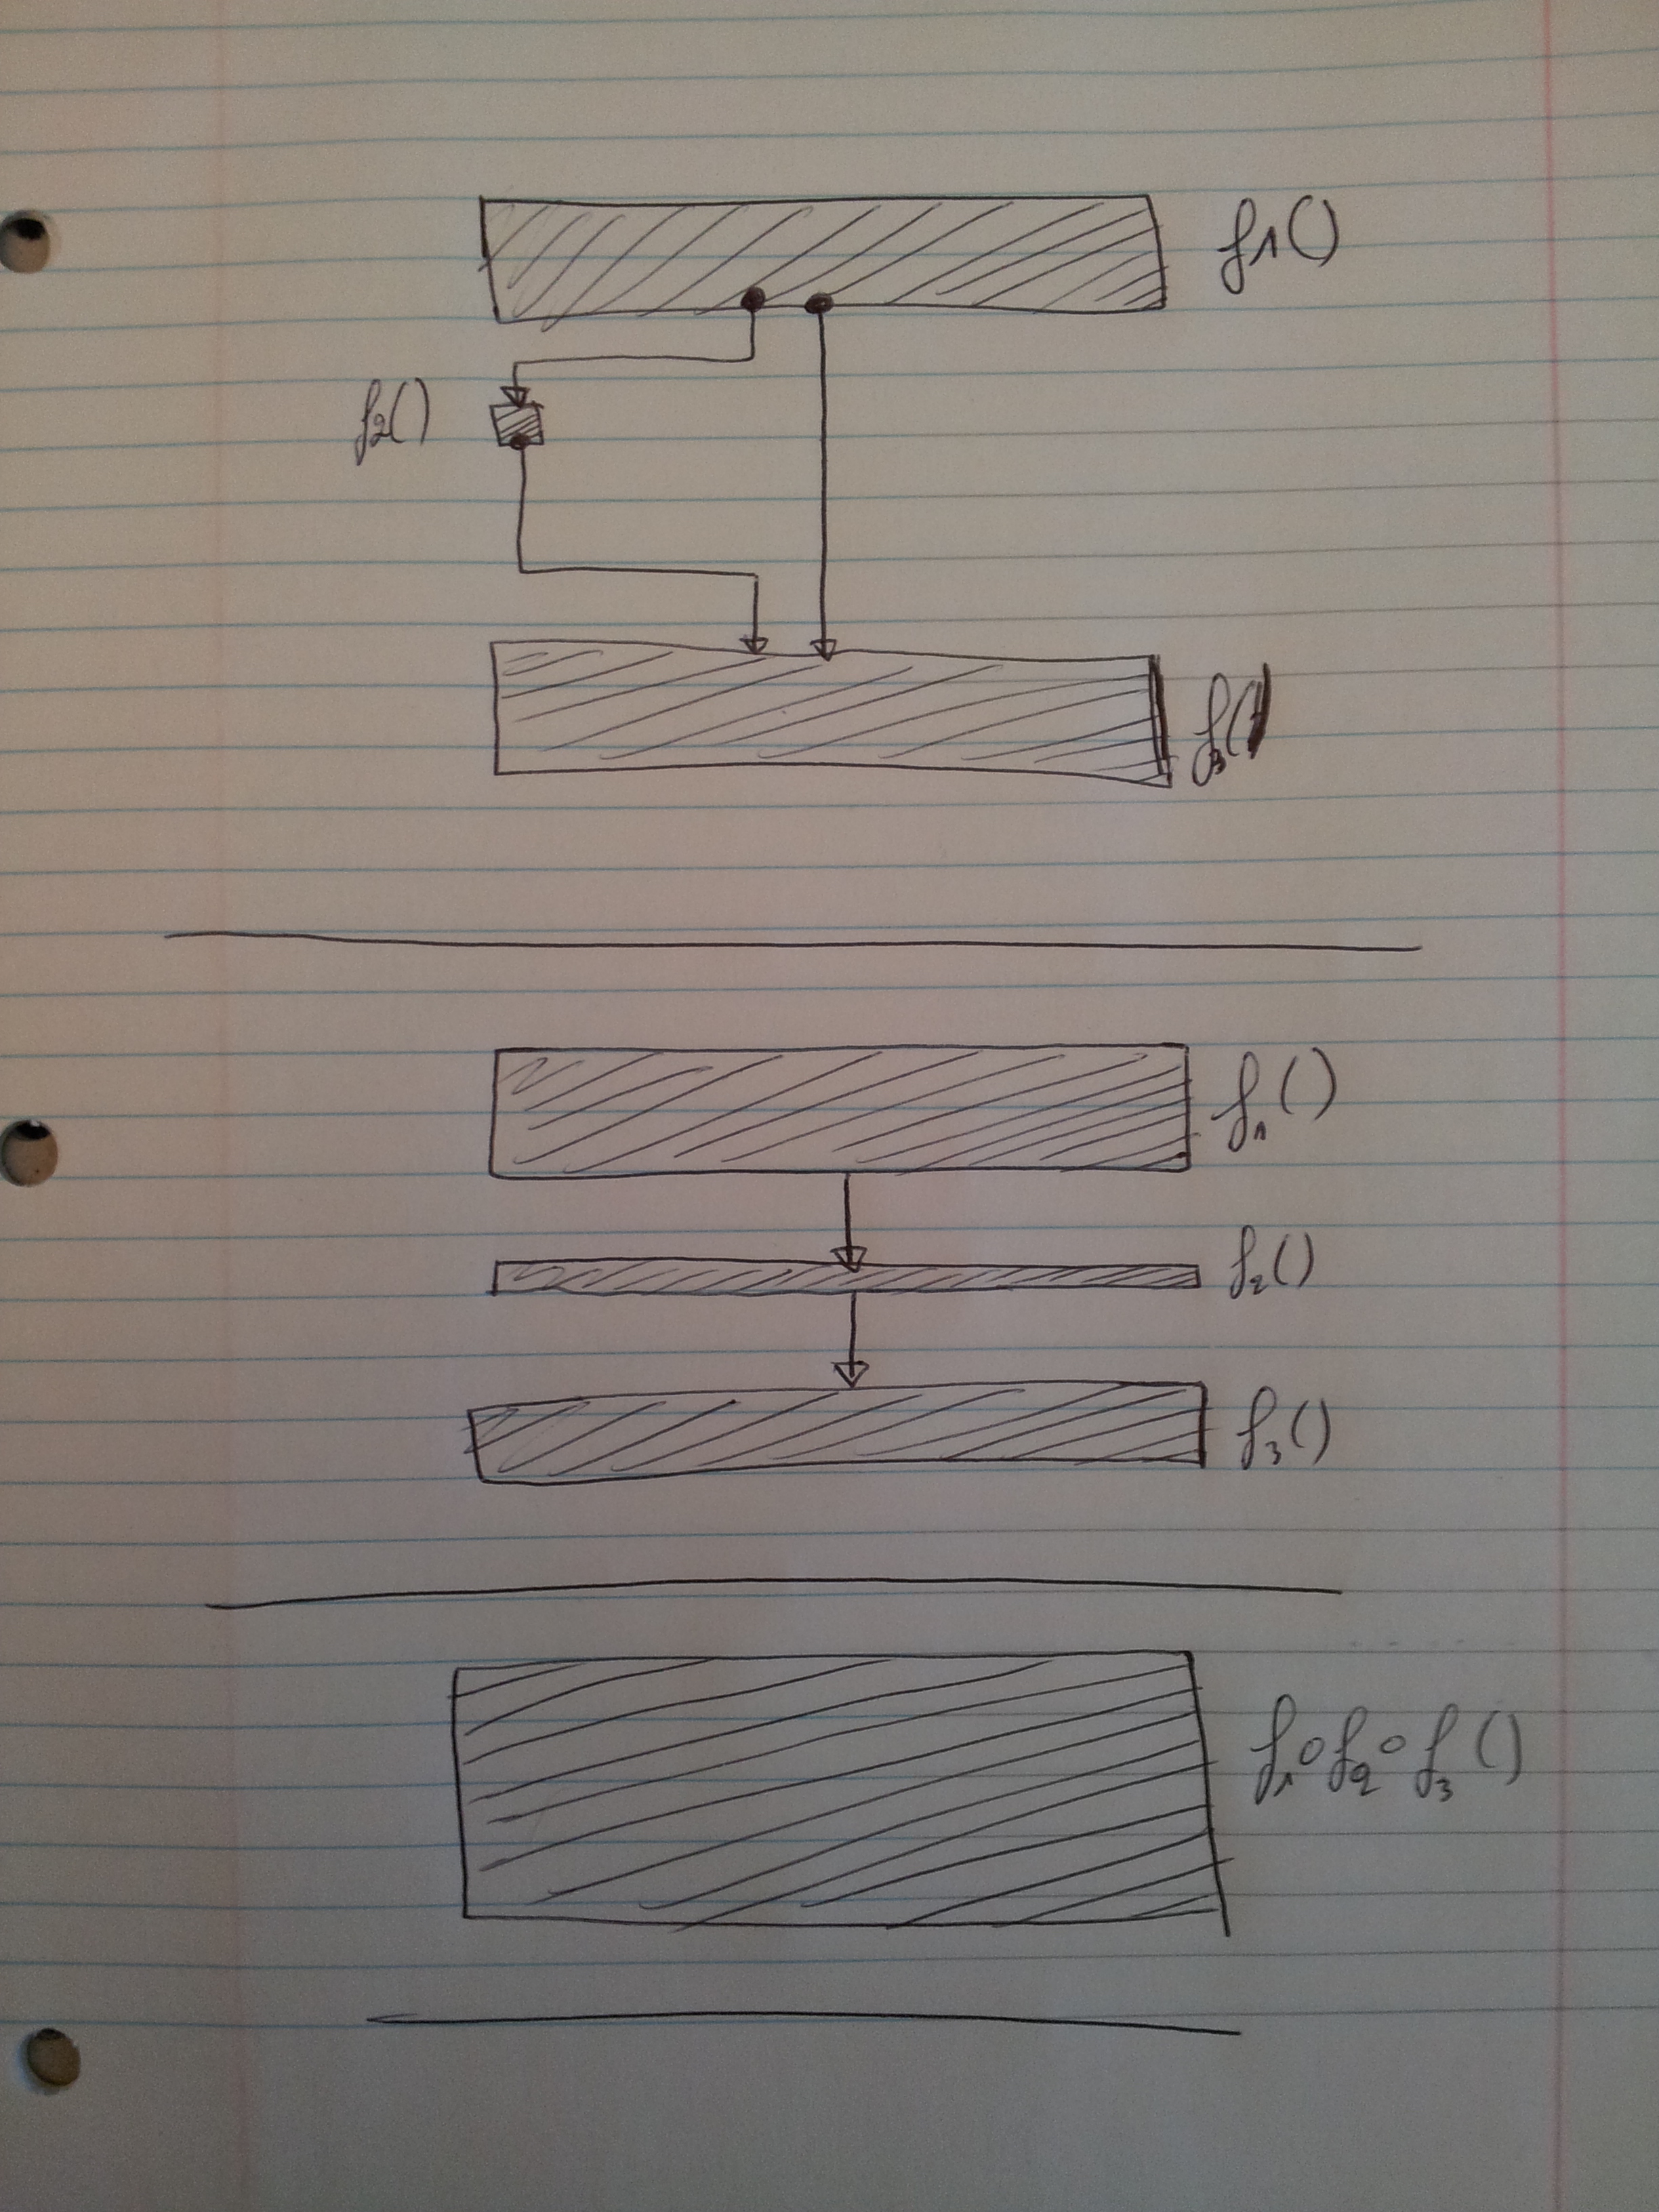 f1()
f2()
f3()
f1()
f2()
f3()
f1∘f2∘f3()